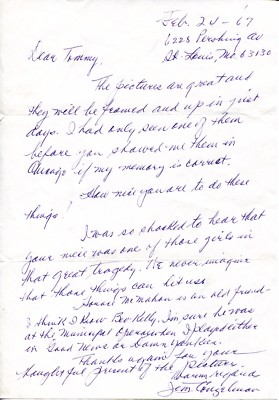 Feb. 24 - 67
6228 Pershing Av
St. Louis, Mo 63130
Dear Tommy,
The pictures are great and
they will be framed and up in just
days. I had only seen one of them
before you showed me them in
Chicago if my memory is correct.
How nice you are to do these
things!
I was so shocked to hear that
your niece was one of those girls in
that great tragedy. We never imagine
that those things can hit us.
McMahon is an old friend -
I think I know Bev Kelly, I'm sure he was
at the Municipal Opera when I played either
in Good News or Damn Yankees.
Thanks again for your
thoughtful present of the pictures.
Warm regards
Jim Conzelman